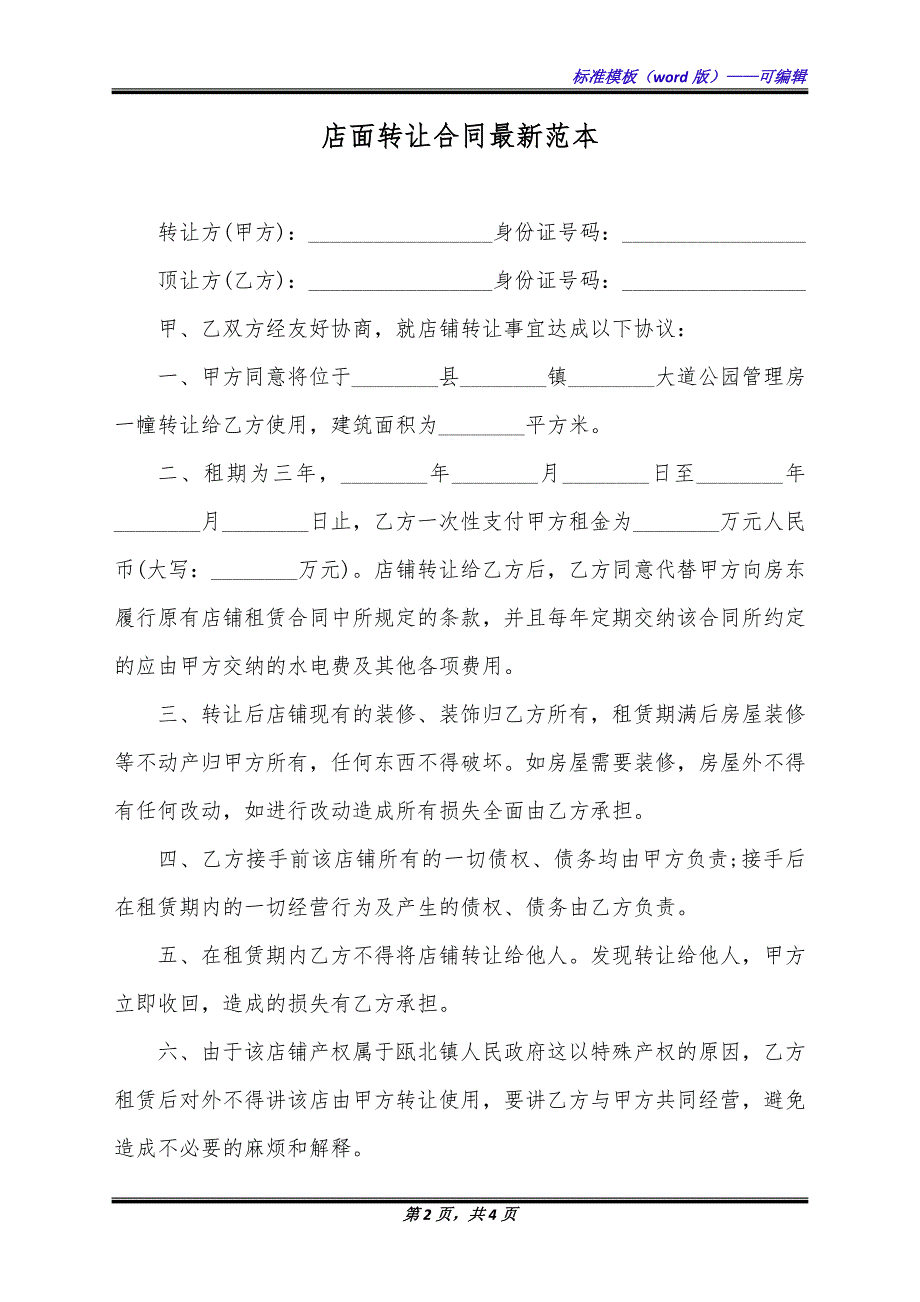 标准模板（word 版）——可编辑
店面转让合同最新范本
转让方(甲方)：_________________身份证号码：_________________
顶让方(乙方)：_________________身份证号码：_________________
甲、乙双方经友好协商，就店铺转让事宜达成以下协议：
一、甲方同意将位于________县________镇________大道公园管理房
一幢转让给乙方使用，建筑面积为________平方米。
二、租期为三年，________年________月________日至________年
________月________日止，乙方一次性支付甲方租金为________万元人民
币(大写：________万元)。店铺转让给乙方后，乙方同意代替甲方向房东
履行原有店铺租赁合同中所规定的条款，并且每年定期交纳该合同所约定
的应由甲方交纳的水电费及其他各项费用。
三、转让后店铺现有的装修、装饰归乙方所有，租赁期满后房屋装修
等不动产归甲方所有，任何东西不得破坏。如房屋需要装修，房屋外不得
有任何改动，如进行改动造成所有损失全面由乙方承担。
四、乙方接手前该店铺所有的一切债权、债务均由甲方负责;接手后
在租赁期内的一切经营行为及产生的债权、债务由乙方负责。
五、在租赁期内乙方不得将店铺转让给他人。发现转让给他人，甲方
立即收回，造成的损失有乙方承担。
六、由于该店铺产权属于瓯北镇人民政府这以特殊产权的原因，乙方
租赁后对外不得讲该店由甲方转让使用，要讲乙方与甲方共同经营，避免
造成不必要的麻烦和解释。
第 2 页，共 4 页